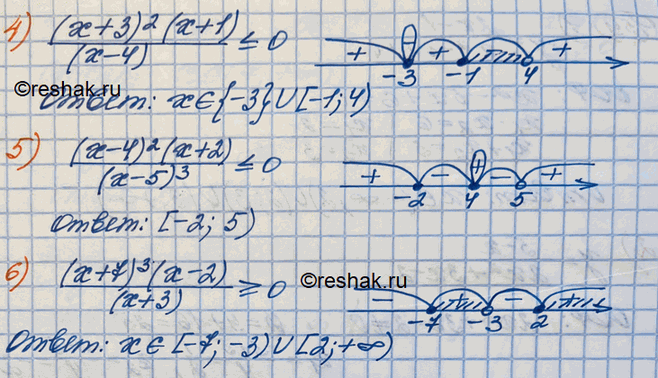 4) (x+3)²(x+1)/(x-4) ≤ 0
+ + + -3 -1 4
©reshak.ru
Ответ: x∈{-3}∪[-1; 4)
5) (x-4)²(x+2)/(x-5)³ ≤ 0
+ - + - + -2 4 5
Ответ: [-2; 5)
6) (x+7)³(x-2)/(x+3) ≥ 0
©reshak.ru
- + - + -7 -3 2
Ответ: x∈[-7; -3)∪[2; +∞)